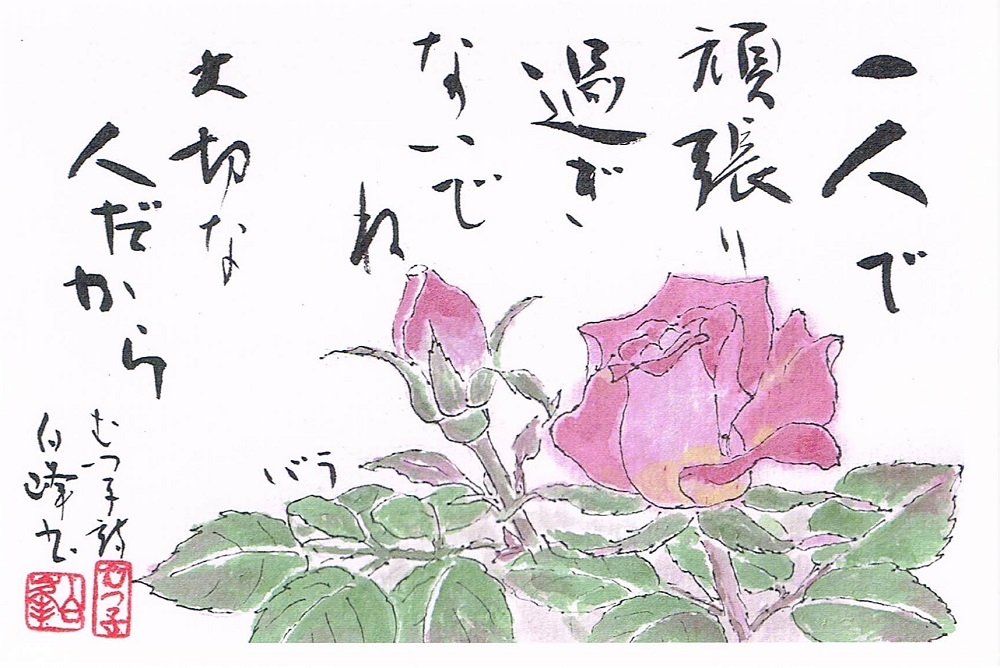 一人で
頑張り
過ぎ
ないで
ね
大切な
人だから
バラ
むつ子詩
白峰書